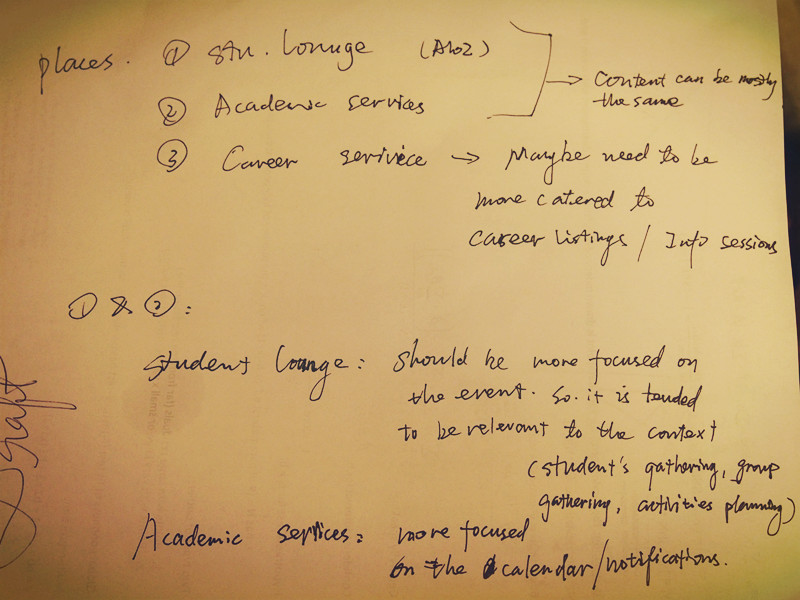 places. ① stu. lounge (A102)
② Academic services
→ Content can be mostly
the same
③ Career serivice → Maybe need to be
more catered to
career listings / Info sessions
① & ②:
student lounge: should be more focused on
the event. so. it is tended
to be relevant to the context
(student's gathering, group
gathering, activities planning)
Academic services: more focused
on the calendar/notifications.
Draft